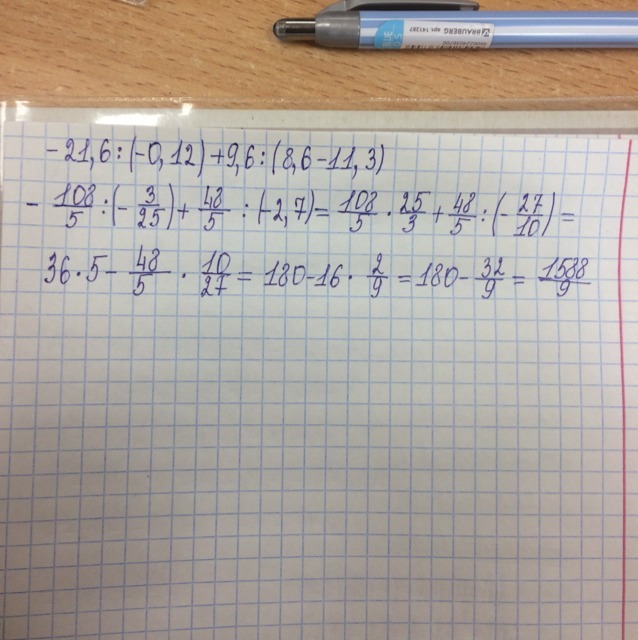 BRAUBERG арт. 141287
-21,6:(-0,12)+9,6:(8,6-11,3)
-108/5:(-3/25)+48/5:(-2,7)=108/5·25/3+48/5:(-27/10)=
36·5-48/5·10/27=180-16·2/9=180-32/9=1588/9